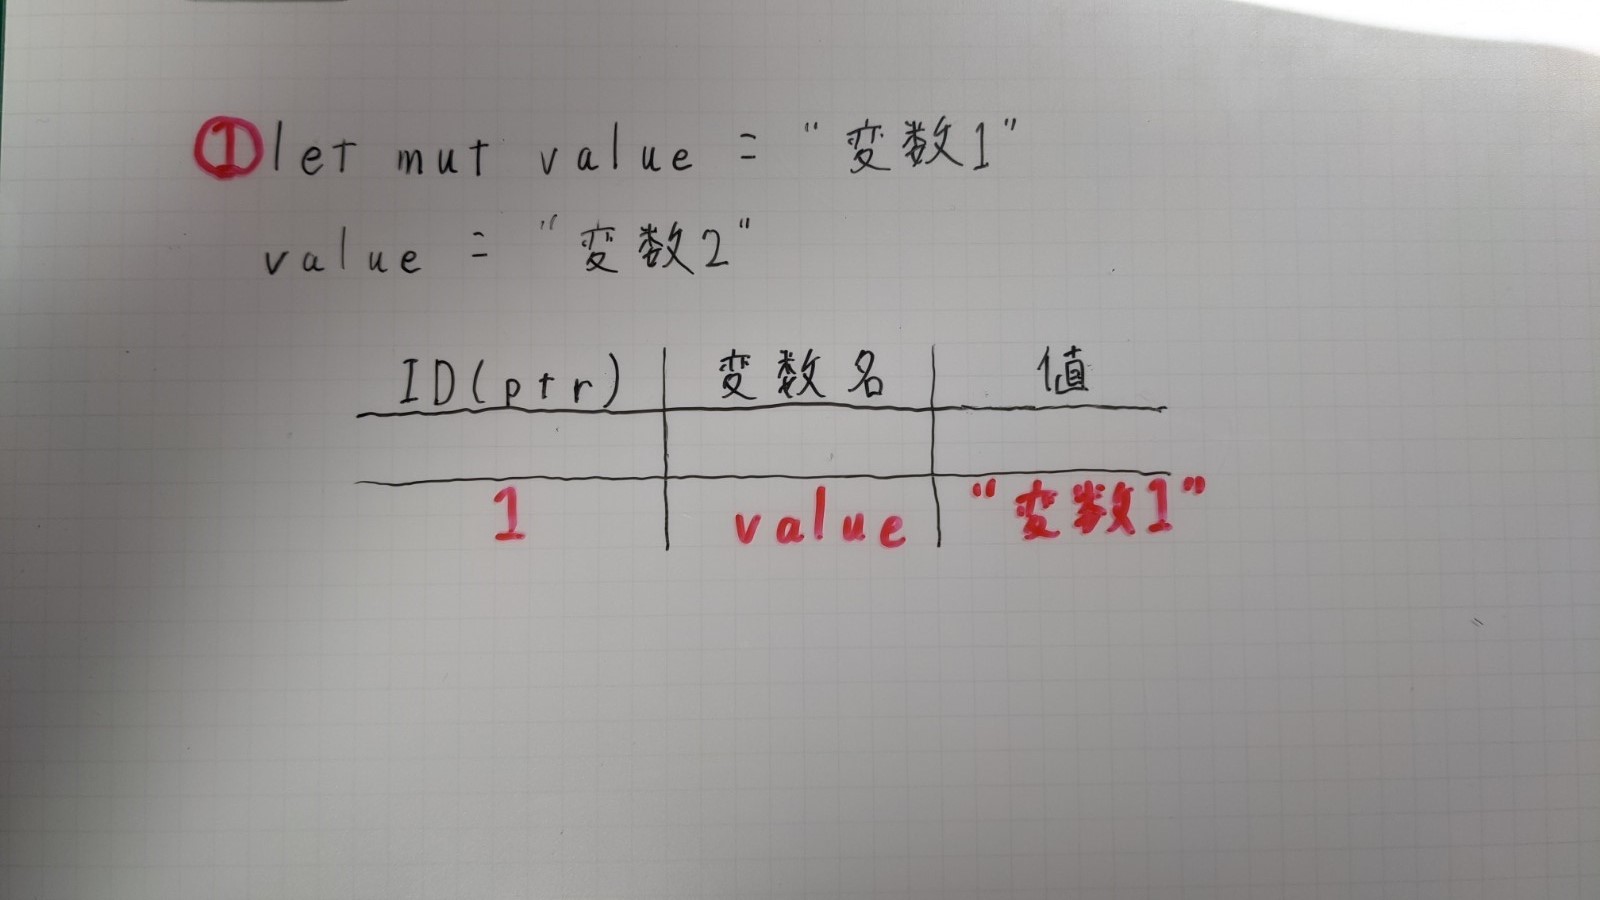 ①let mut value = "変数1"
value = "変数2"
ID(ptr) 変数名 値
1 value "変数1"